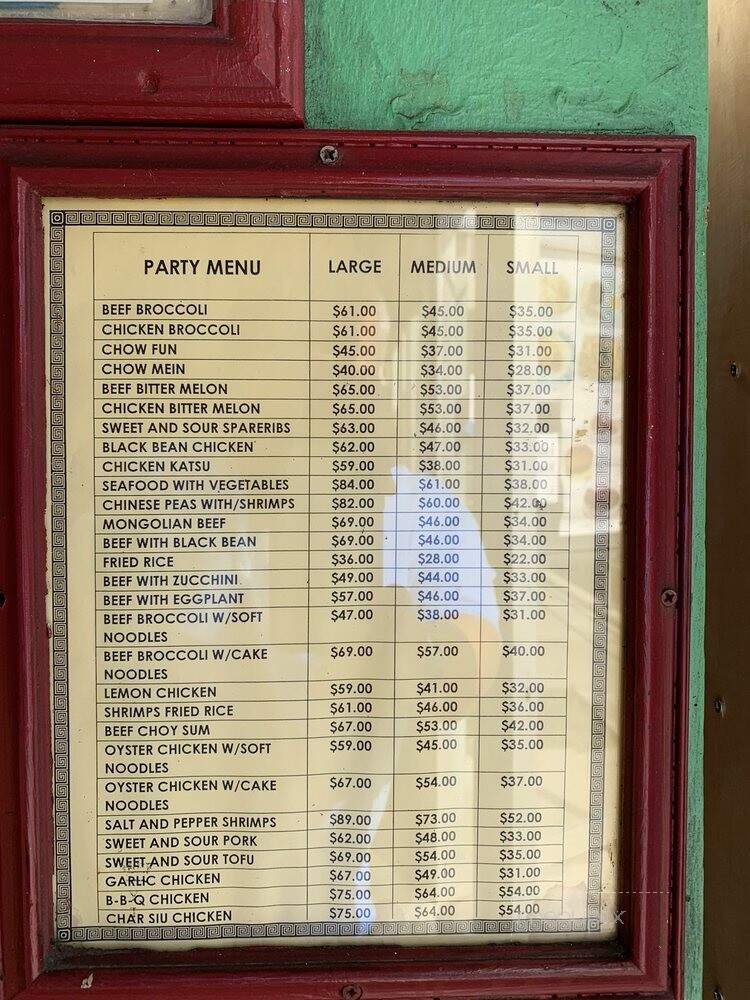 PARTY MENU LARGE MEDIUM SMALL
BEEF BROCCOLI $61.00 $45.00 $35.00
CHICKEN BROCCOLI $61.00 $45.00 $35.00
CHOW FUN $45.00 $37.00 $31.00
CHOW MEIN $40.00 $34.00 $28.00
BEEF BITTER MELON $65.00 $53.00 $37.00
CHICKEN BITTER MELON $65.00 $53.00 $37.00
SWEET AND SOUR SPARERIBS $63.00 $46.00 $32.00
BLACK BEAN CHICKEN $62.00 $47.00 $33.00
CHICKEN KATSU $59.00 $38.00 $31.00
SEAFOOD WITH VEGETABLES $84.00 $61.00 $38.00
CHINESE PEAS WITH/SHRIMPS $82.00 $60.00 $42.00
MONGOLIAN BEEF $69.00 $46.00 $34.00
BEEF WITH BLACK BEAN $69.00 $46.00 $34.00
FRIED RICE $36.00 $28.00 $22.00
BEEF WITH ZUCCHINI $49.00 $44.00 $33.00
BEEF WITH EGGPLANT $57.00 $46.00 $37.00
BEEF BROCCOLI W/SOFT $47.00 $38.00 $31.00
NOODLES
BEEF BROCCOLI W/CAKE $69.00 $57.00 $40.00
NOODLES
LEMON CHICKEN $59.00 $41.00 $32.00
SHRIMPS FRIED RICE $61.00 $46.00 $36.00
BEEF CHOY SUM $67.00 $53.00 $42.00
OYSTER CHICKEN W/SOFT $59.00 $45.00 $35.00
NOODLES
OYSTER CHICKEN W/CAKE $67.00 $54.00 $37.00
NOODLES
SALT AND PEPPER SHRIMPS $89.00 $73.00 $52.00
SWEET AND SOUR PORK $62.00 $48.00 $33.00
SWEET AND SOUR TOFU $69.00 $54.00 $35.00
GARLIC CHICKEN $67.00 $49.00 $31.00
B-B-Q CHICKEN $75.00 $64.00 $54.00
CHAR SIU CHICKEN $75.00 $64.00 $54.00